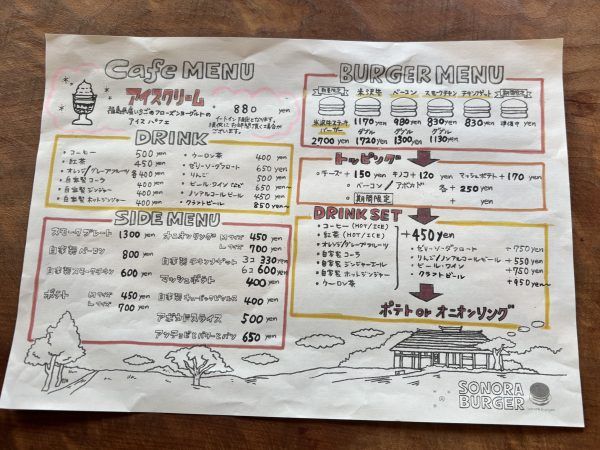 Cafe MENU
アイスクリーム
福島県産いちごのフローズンヨーグルトの
アイスパフェ
880 yen
DRINK
・コーヒー 500 yen
・紅茶 450 yen
・オレンジ/グレープフルーツ 各400 yen
・自家製コーラ 400 yen
・自家製ジンジャー 400 yen
・自家製ホットジンジャー 400 yen
・ウーロン茶 400 yen
・ゼリーソーダフロート 650 yen
・りんご 500 yen
・ビール・ワインなど 650 yen〜
・ノンアルコールビール 450 yen
・クラフトビール 850 yen〜
SIDE MENU
スモークプレート 1300 yen
自家製ベーコン 800 yen
自家製スモークチキン 600 yen
ポテト Mサイズ 450 yen
Lサイズ 700 yen
オニオンリング Mサイズ 450 yen
Lサイズ 700 yen
自家製チキンナゲット 3コ 330 yen
6コ 600 yen
マッシュポテト 400 yen
400 yen
アボカドスライス 500 yen
アンチョビとバターとパン 650 yen
BURGER MENU
米沢牛 ベーコン スモークチキン チキンナゲット
米沢牛ステーキバーガー 1170 yen 980 yen 830 yen 830 yen 準備中 yen
ダブル ダブル ダブル
2700 yen 1720 yen 1300 yen 1130 yen
トッピング
・チーズ + 150 yen キノコ + 120 yen ・マッシュポテト + 170 yen
・ベーコン / アボカド 各 + 250 yen
・期間限定 + yen
DRINK SET
・コーヒー (HOT/ICE)
・紅茶 (HOT/ICE)
・オレンジ/グレープフルーツ
・自家製コーラ
・自家製ジンジャーエール
・自家製ホットジンジャー
・ウーロン茶
+450 yen
・ゼリーソーダフロート +750 yen
・りんご/ノンアルコールビール +550 yen
・ビール・ワイン +750 yen
・クラフトビール +950 yen〜
ポテト or オニオンリング
SONORA
BURGER